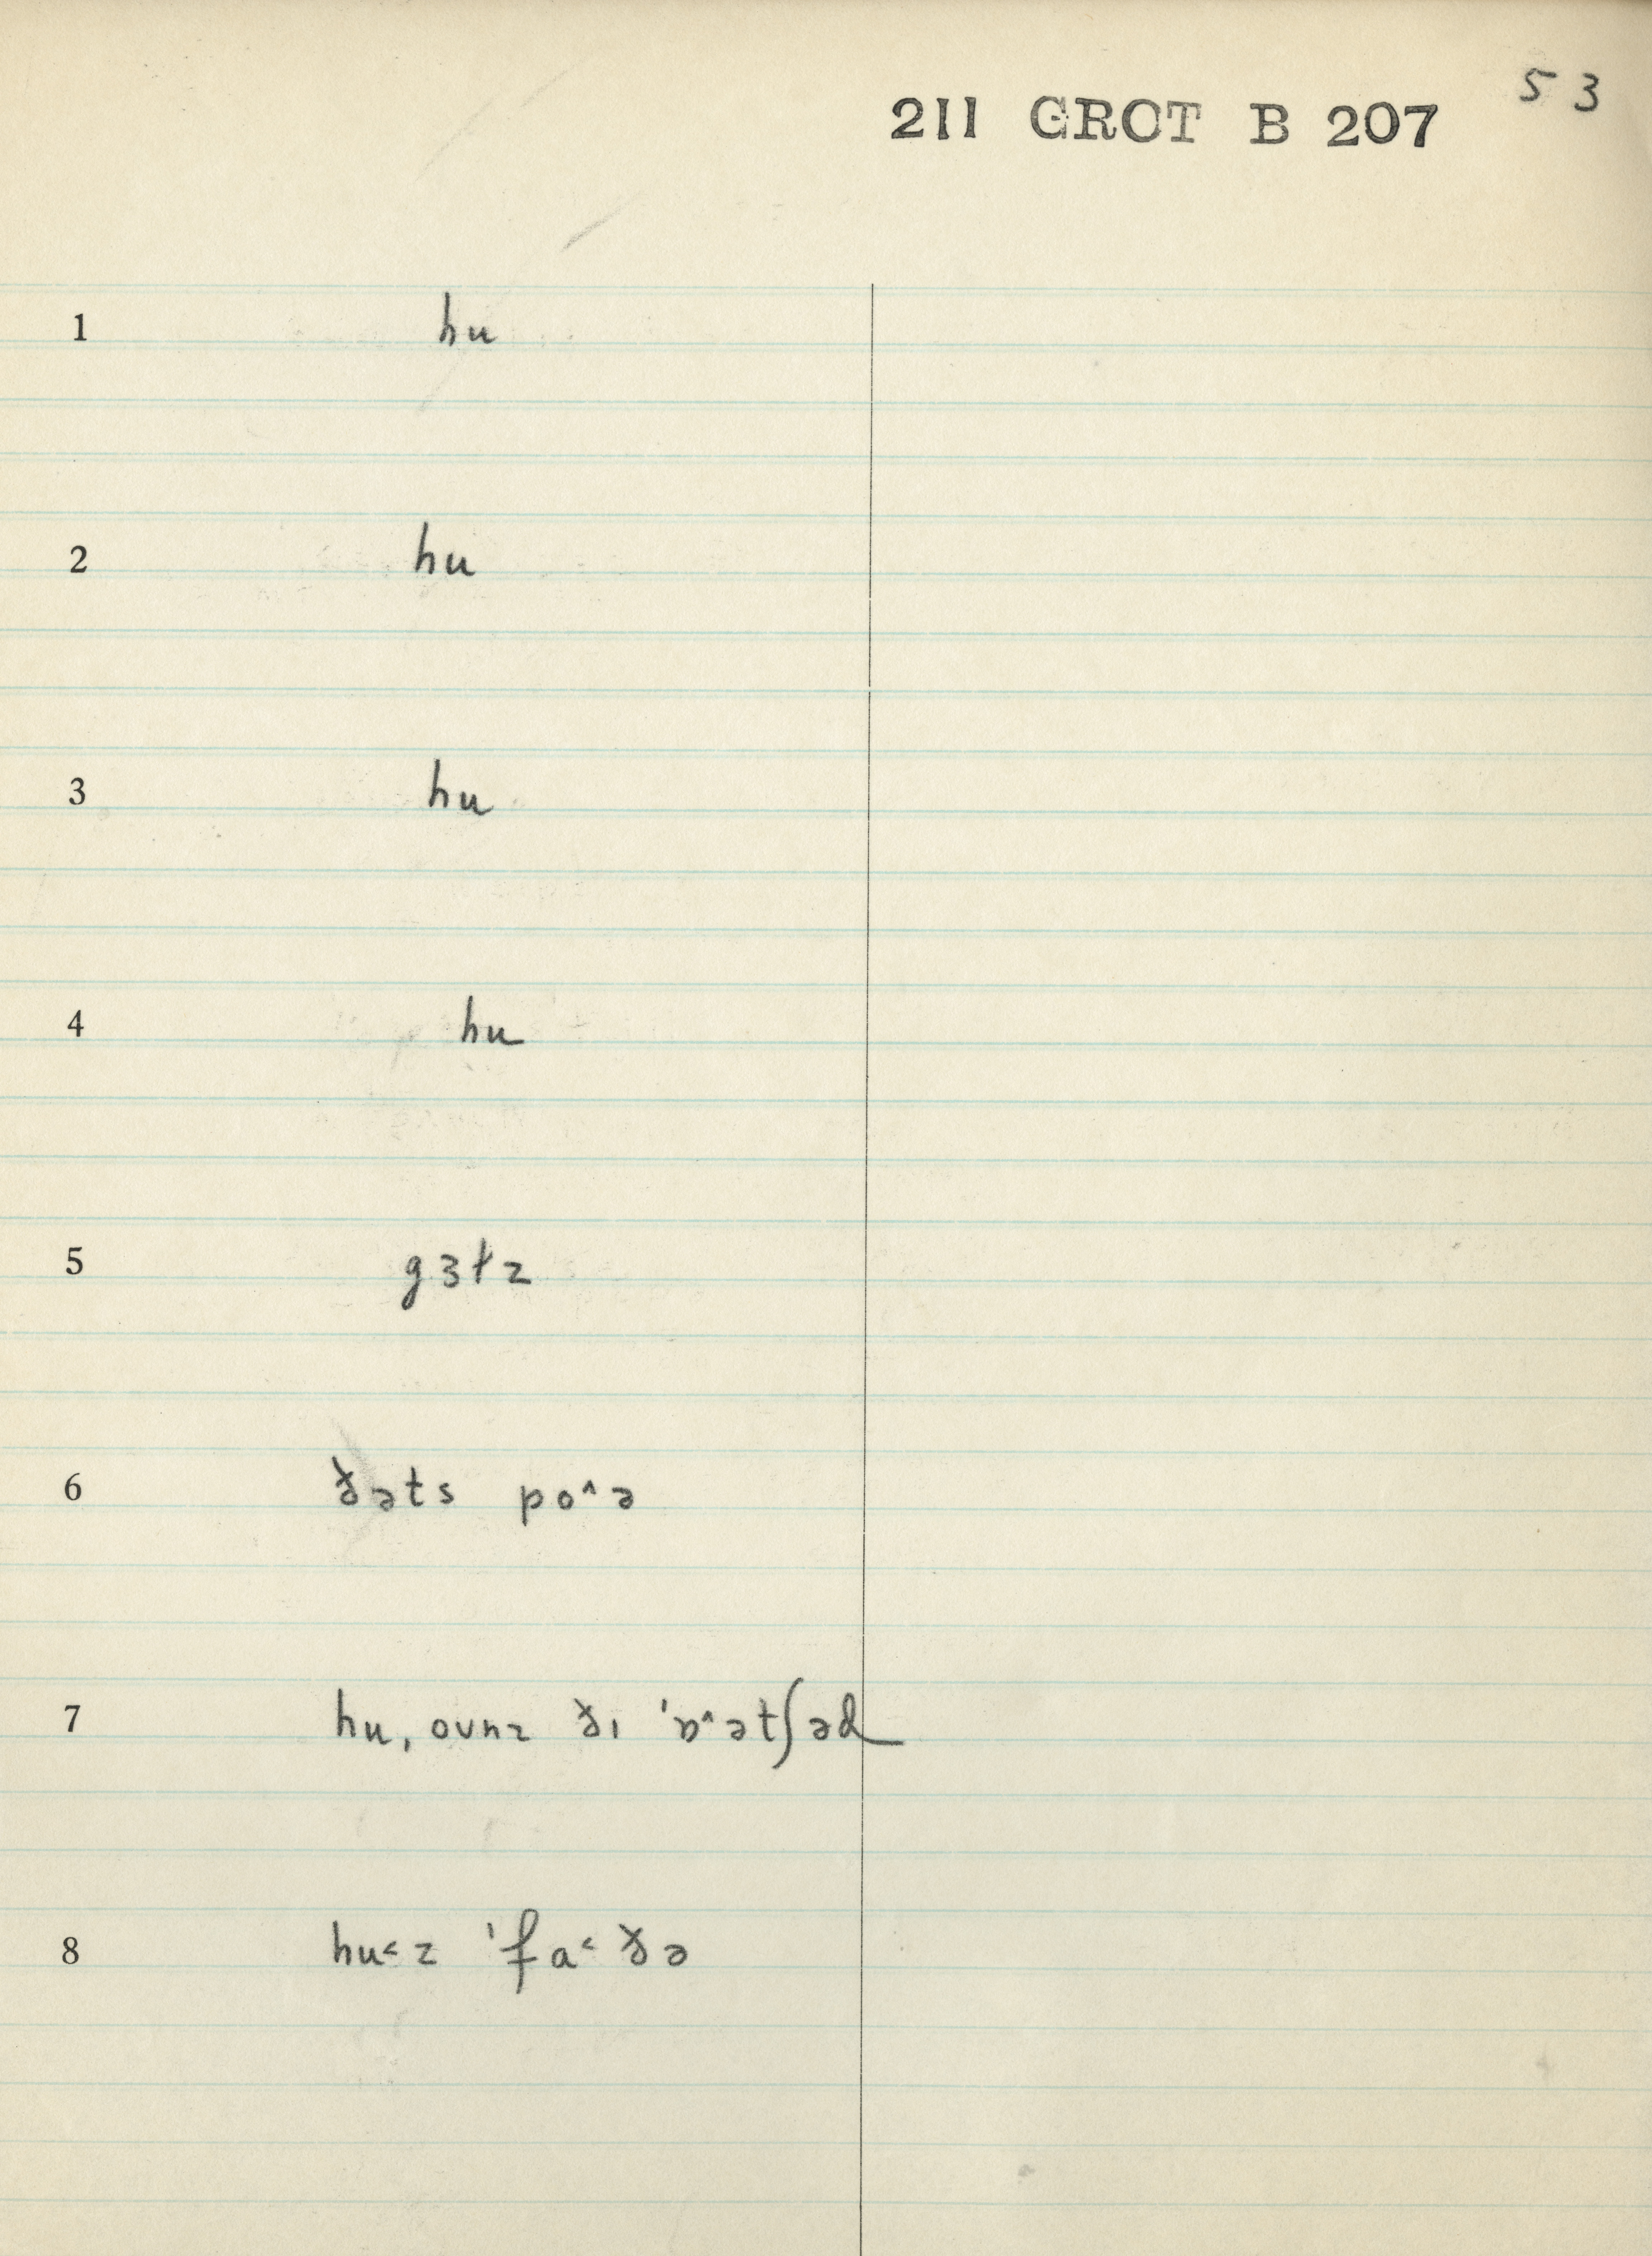 53
211 GROT B 207
1 hu
2 hu
3 hu
4 hu
5 gɜɫz
6 ðəts po^ə
7 hu, ovnz ðɪ 'ɒ^ətʃəd
8 hu˂z 'fa˂ðə